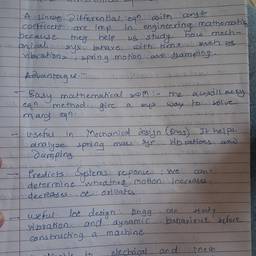 A linear differential eqn with const
coefficient are imp. in engineering mathematics
because they help us study how mech-
anical sys behave with time such as
vibrations, spring motion and damping.
Advantages :-
→ Easy mathematical :- the auxillary
eqn method give a sys way to solve
many eqn.
→ useful in Mechanical design (Engg). It helps
analyze spring mass sys vibrations and
Damping
→ Predicts System response : We can
determine whether motion increases
decreases or oscillates
→ useful for design : Engg can study
vibration and dynamic behaviour before
constructing a machine
to electrical and